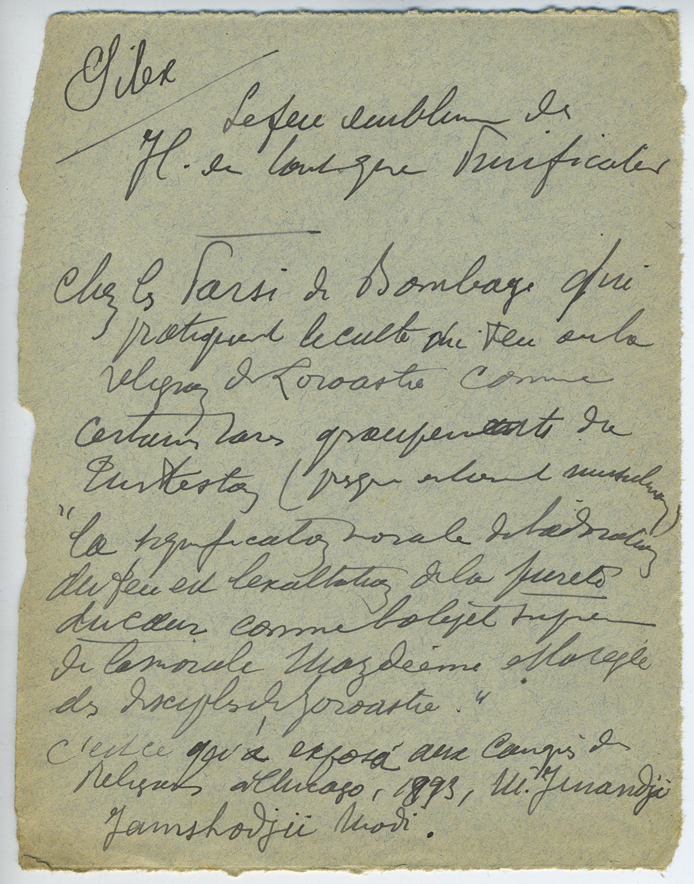 Silex
Le feu emblème de
H. de tout genre Purificater
Chez les Parsi de Bombaye qui
pratiquent le culte du Feu ou la
religion de Zoroastre comme
certains rares groupements du
Turkestan (presque entièrement musulman)
"la signification morale de l'adoration
du feu est l'exaltation de la pureté
du cœur comme l'objet suprême
de la morale Mazdéenne et la règle
des disciples de Zoroastre."
c'est ce qu'a exposé aux Congrès des
Religions à Chicago, 1893, M. Jinandji
Jamshodjii Modi.